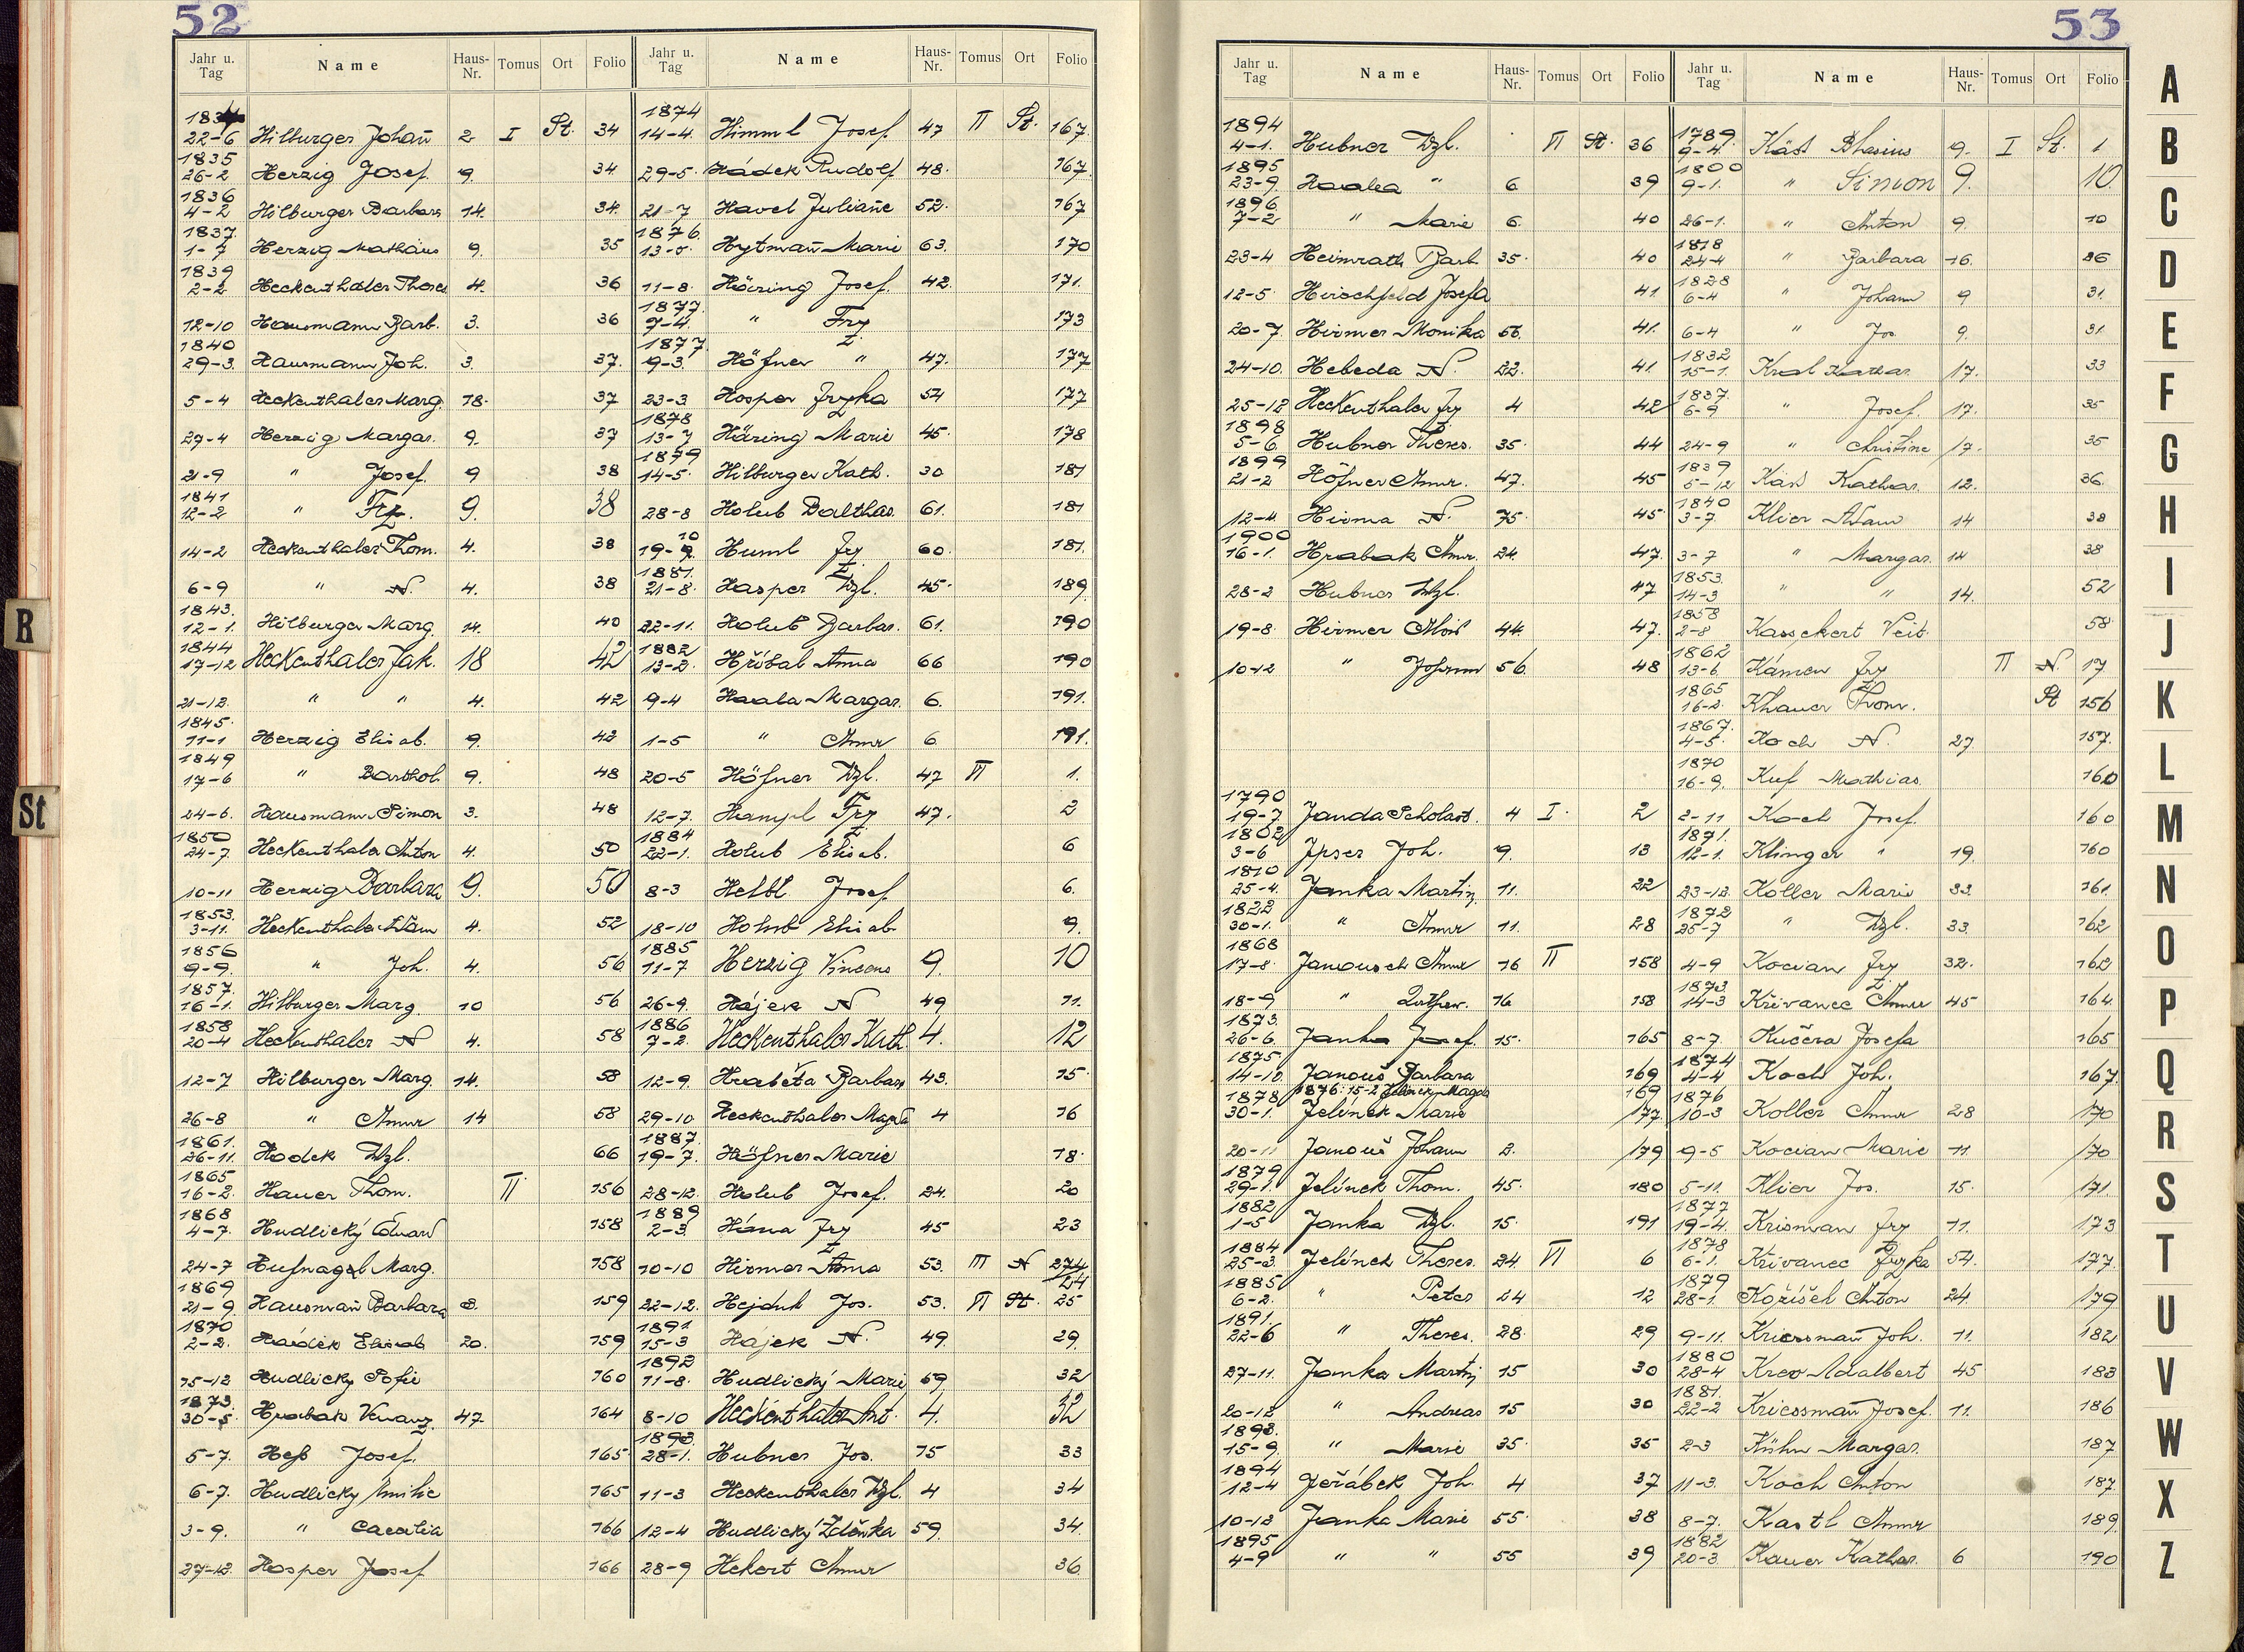 52
Jahr u. Tag Name Haus-Nr. Tomus Ort Folio
22-6 Hilburger Johañ 2 I St. 34
1835
26-2 Herzig Josef 9. 34
1836
4-2 Hilburger Barbara 14. 34.
1837.
1-7 Herzig Mathäus 9. 35
1839
2-2 Heckenthaler Theres 4. 36
12-10 Hausmann Barb. 3. 36
1840
29-3. Hausmann Joh. 3. 37.
5-4 Heckenthaler Marg. 18. 37
27-4 Herzig Margar. 9. 37
21-9 " Josef. 9 38
1841
12-2 " Frz. 9. 38
14-2 Heckenthaler Thom. 4. 38
6-9 " N. 4. 38
1843.
12-1. Hilburger Marg. 14. 40
1844
17-12 Heckenthaler Jak. 18 42
21-12. " " 4. 42
1845.
11-1 Herzig Elisab. 9. 42
1849
17-6 " Barthol. 9. 48
24-6. Hausmann Simon 3. 48
1850
24-7. Heckenthaler Anton 4. 50
10-11 Herzig Barbara 9. 50
1853.
3-11. Heckenthaler Adam 4. 52
1856
9-9. " Joh. 4. 56
1857.
16-1. Hilburger Marg. 10 56
1858
20-4 Heckenthaler N 4. 58
12-7 Hilburger Marg. 14. 58
26-8 " Anna 14 58
1861.
26-11. Hodek Wzl. 66
1865
16-2. Hauer Thom. II 156
1868
4-7. Hudlický Eduard 158
24-7 Hufnagel Marg. 158
1869
21-9. Hausmañ Barbara 8. 159
1870
2-2. Hádek Elisab 20. 159
15-12 Hudlický Sofie 160
1873.
30-5. Hrabak Venanz. 47 164
5-7. Heß Josef. 165
6-7. Hudlický Emilie 165
3-9. " Caecilia 166
27-12. Hosper Josef 166
Jahr u. Tag Name Haus-Nr. Tomus Ort Folio
1874
14-4. Himml Josef 47 II St. 167.
29-5. Hádek Rudolf 48. 167.
21-7 Havel Juliañe 52. 167
1876.
13-5. Hytmañ Marie 63. 170
11-8. Häring Josef. 42. 171.
1877.
7-4. " Frz 173
1877.
9-3. Höfner " 47. 177
23-3 Hosper Frzka 54 177
1878
13-7 Häring Marie 45. 178
1879
14-5. Hilburger Kath. 30 181
28-8 Holub Balthas. 61. 181
19-10 Huml Frz 60. 181.
1881.
21-8. Hasper Wzl. 45. 189.
22-11. Holub Barbar. 61. 190
1882
13-2. Hřibal Anna 66 190
9-4 Haala Margar. 6. 191.
1-5 " Anna 6. 191.
20-5 Höfner Wzl. 47 VI 1.
12-7. Hampl Frz 47. 2
1884
22-1. Holub Elisab. 6
8-3 Helbl Josef 6.
18-10 Holub Elisab. 9.
1885
11-7 Herzig Vincens 9. 10
26-9. Hájek N 49 11.
1886
7-2. Heckenthaler Kath. 4. 12
12-9. Hrabéta Barbara 43. 15.
29-10 Heckenthaler Magda 4 16
1887.
19-7. Höfner Marie 18.
28-12. Holub Josef. 24. 20
1889
2-3. Hána Frz 45 23
10-10 Hirmer Anna 53. III N 274
24
22-12. Hejduk Jos. 53. VI St. 25
1891.
15-3 Hájek N. 49. 29.
1892
11-8. Hudlický Marie 69 32
8-10 Heckenthaler Ant. 4. 32
1893.
28-1. Hubner Jos. 75 33
11-3 Heckenthaler Wzl. 4 34
12-4 Hudlický Zděnka 59. 34.
28-9 Hekert Anna 36.
53
Jahr u. Tag Name Haus-Nr. Tomus Ort Folio
1894
4-1. Hubner Wzl. VI St. 36
1895
23-9. Haala " 6 39
1896
7-2 " Marie 6. 40
23-4 Heimrath Barb. 35. 40
12-5. Hirschfeld Josefa 41.
20-7. Hirmer Monika 56. 41.
24-10. Hebeda N. 22. 41
25-12 Heckenthaler Frz 4 42
1898
5-6. Hubner Theres. 35. 44
1899
21-2 Höfner Anna. 47. 45
12-4 Hirma N. 75. 45.
1900
16-1. Hrabak Anna. 24. 47.
28-2 Hubner Wzl. 47
19-8. Hirmer Alois 44. 47.
10-12 " Johann 56. 48
1790
19-7 Janda Scholast. 4 I. 2
1802
3-6 Ipser Joh. 9. 13
1810
25-4. Janka Martin 11. 22
1822
30-1. " Anna 11. 28
1868
17-8. Janousch Anna 16 II 158
18-9 " 16. 158
1873.
26-6. Janka Josef. 15. 165
1875
14-10. Janouš Barbara 169
1876. 15-2 Jelinek Magda 169
1878
30-1. Jelínek Marie 177
20-11 Janouš Johann 2. 179
1879
29-1. Jelínek Thom. 45. 180
1882
1-5 Janka Wzl. 15. 191
1884
25-3. Jelínek Theres. 24. VI 6
1885
6-2. " Peter 24 12
1891.
22-6 " Theres. 28. 29
27-11. Janka Martin 15 30
20-12 " Andreas 15 30
1893.
15-9. " Marie 35. 35
1894
12-4 Jeřábek Joh. 4 37
10-12 Janka Marie 55. 38
1895
4-9 " " 55 39
Jahr u. Tag Name Haus-Nr. Tomus Ort Folio
1789.
9-4. Käst Blasius 9. I St. 1
1800
9-1. " Simon 9. 10.
26-1. " Anton 9. 10
1818
24-4 " Barbara 16. 26
1828
6-4 " Johann 9 31.
6-4 " Jos. 9. 31.
1832
15-1. Kral Kathar. 17. 33
1837.
6-9 " Josef. 17. 35
24-9 " Christine 17. 35
1839
5-12 Käst Kathar. 12. 36.
1840
3-7. Klier Adam 14 38
3-7 " Margar. 14 38
1853.
14-3 " " 14. 52
1858
2-8 Kasseckert Veit. 58
1862
13-6. Kámen Frz II N 17
1865
16-2. Khauer Thom. St 156
1867.
4-5. Koch N. 27 157.
1870
16-9. Kuf Mathias 160
2-11 Koch Josef. 160
1871.
12-1. Klinger " 19. 160
23-12. Koller Marie 33. 161.
1872
25-7 " Wzl. 33. 162
4-9 Kocian Frz 32. 162
1873.
14-3 Křivanec Anna 45 164
8-7. Kučera Josefa 165
1874
4-4 Koch Joh. 167.
1876
10-3 Koller Anna 28 170
9-5 Kocian Marie 11 170
5-11. Klier Jos. 15. 171
1877
19-4. Krisman Frz 11. 173
1878
6-1. Křivanec Frzka 54. 177.
1879
28-1. Kožíšek Anton 24. 179
9-11. Kriessmañ Joh. 11. 182
1880
28-4 Adalbert 45 183
1881.
22-2 Kriessmañ Josef. 11. 186
2-3 Kühn Margar. 187
11-3. Koch Anton 187.
8-7. Kastl Anna 189.
1882
20-3 Kauer Kathar. 6 190
A
B
C
D
E
F
G
H
I
J
K
L
M
N
O
P
Q
R
S
T
U
V
W
X
Z
R
St